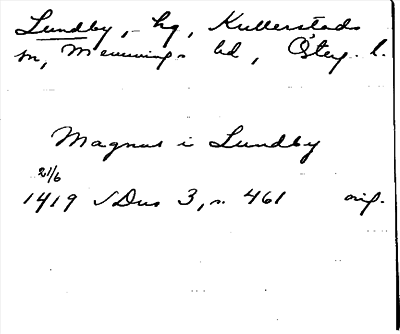 Lundby, - hg, Kullerstads
sn, Memmings hd, Österg. l.
Magnus i Lundby
21/6
1419 SDns 3, s. 461 orig.